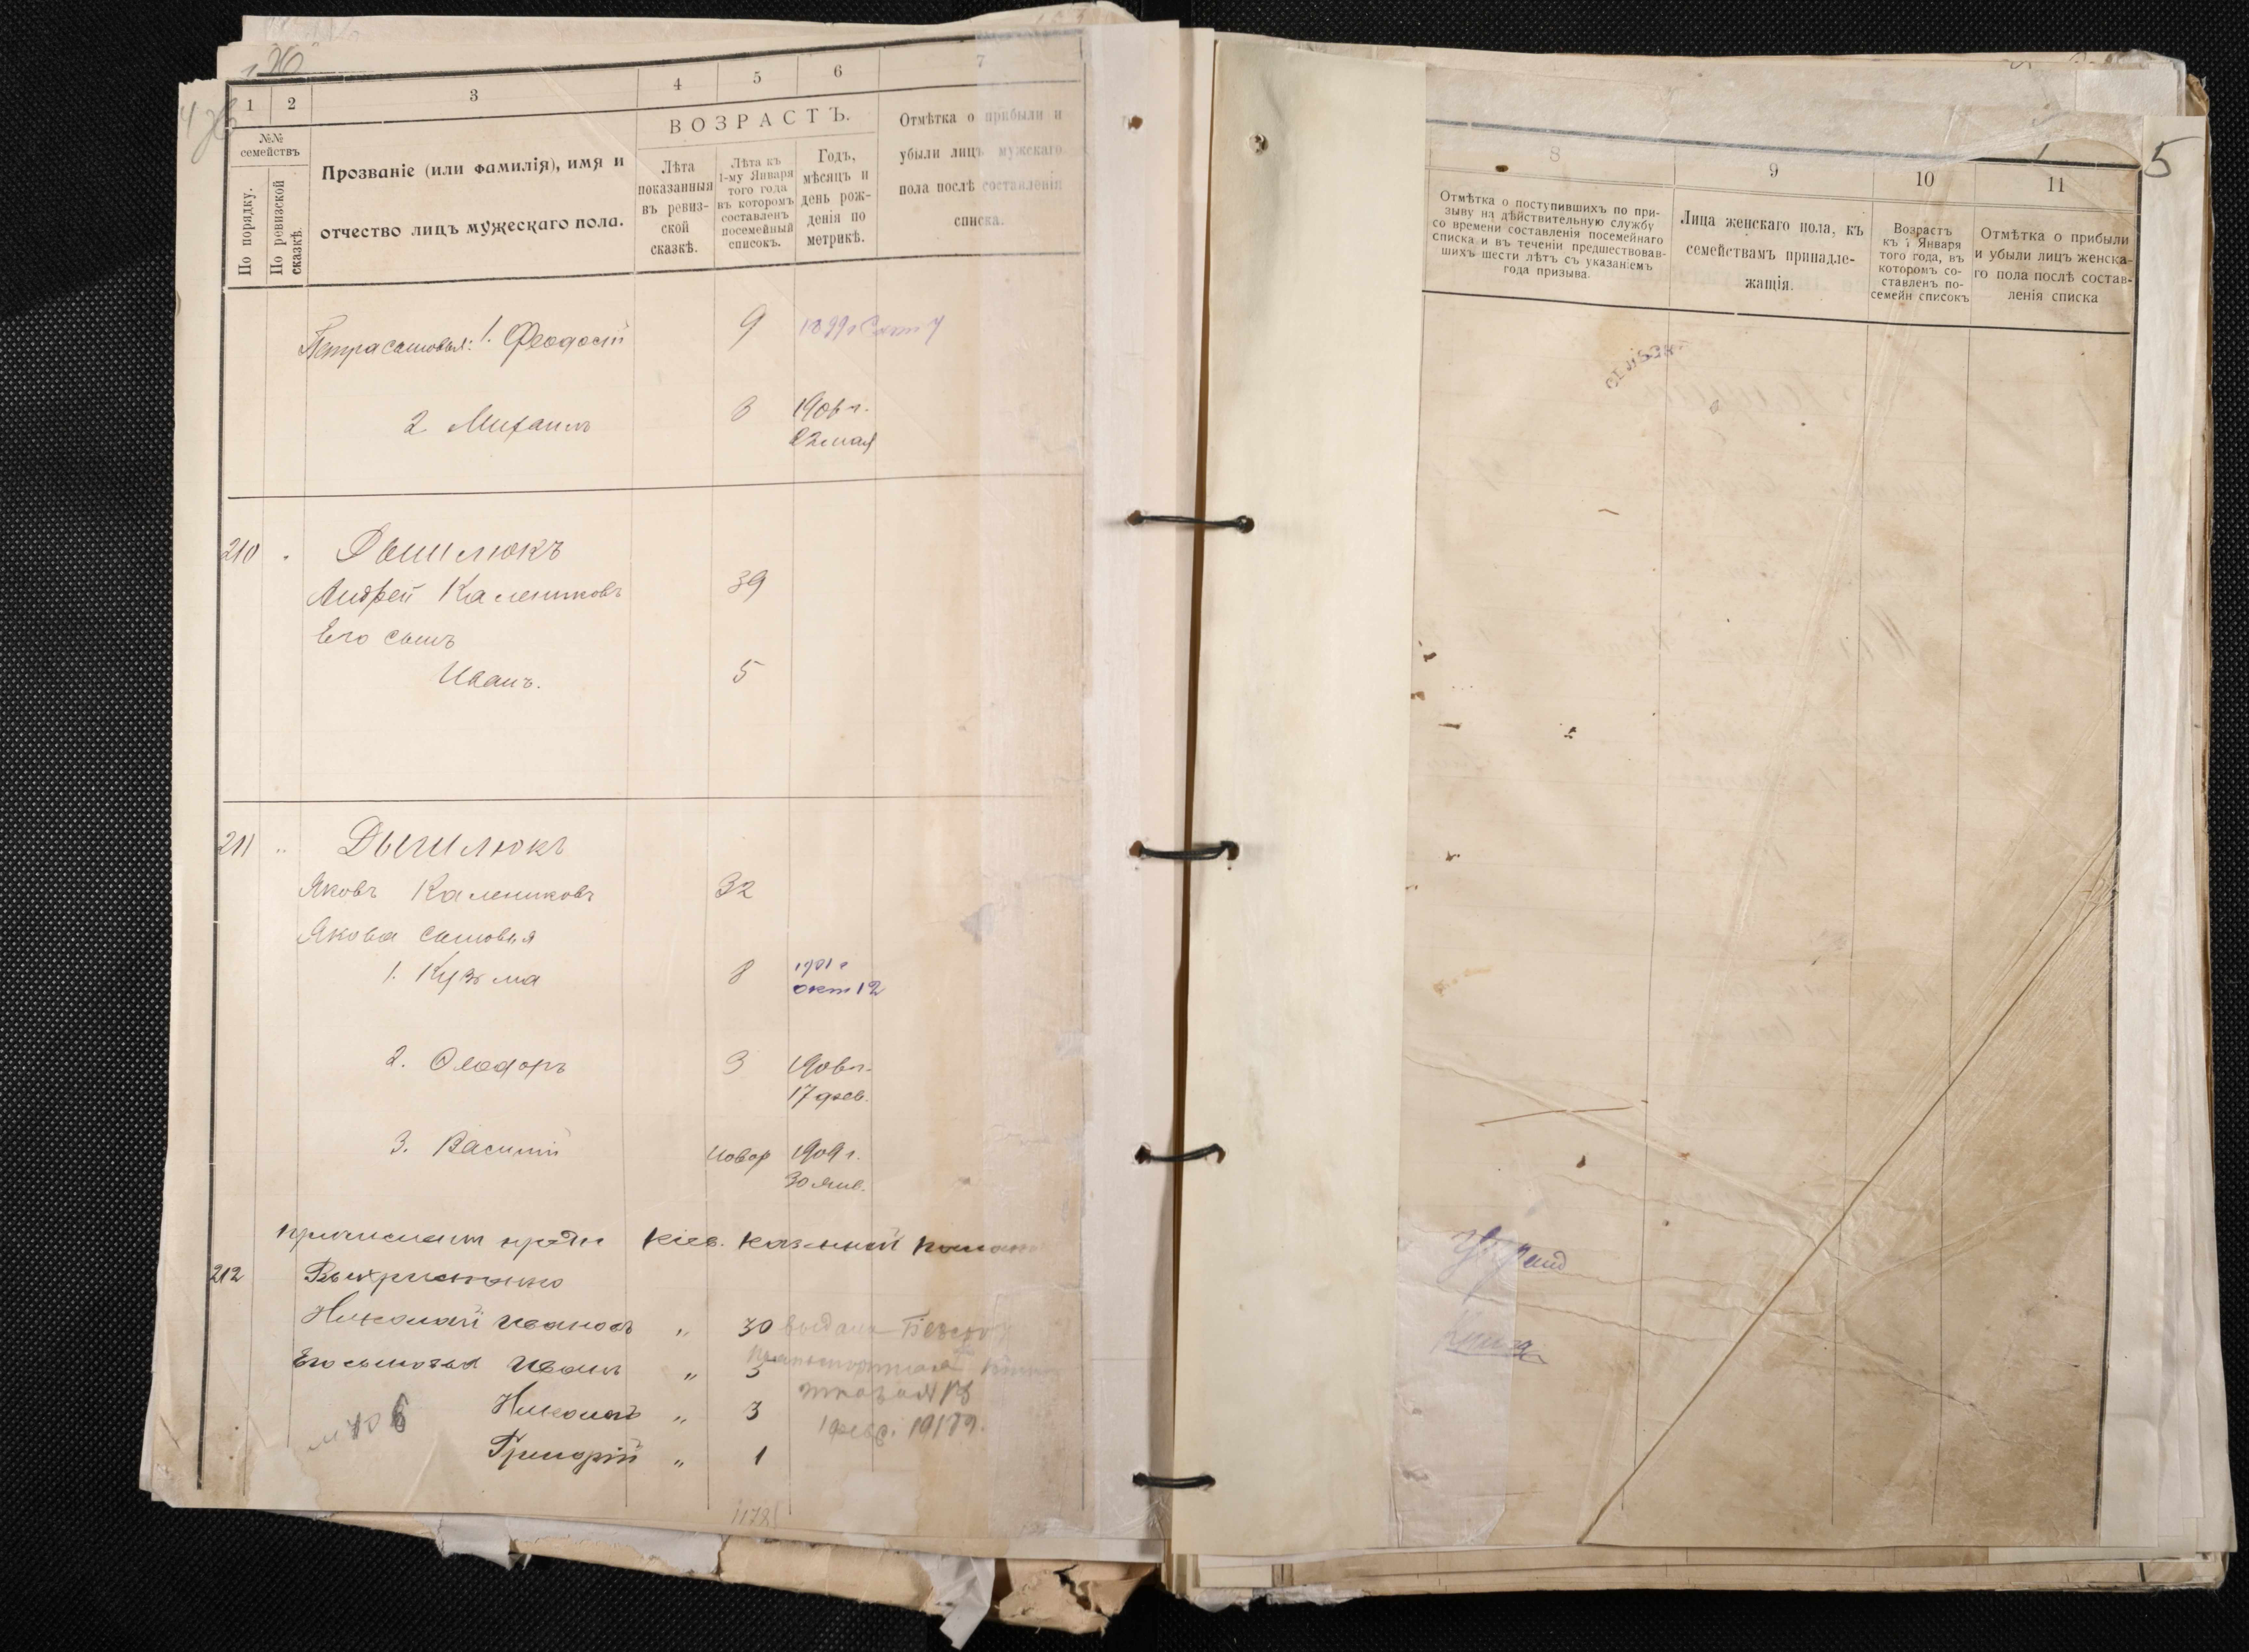 1
2
3
4
5
6
7
№№ семействъ
По порядку.
По ревизской сказкѣ.
Прозваніе (или фамилія), имя и
отчество лицъ мужескаго пола.
ВОЗРАСТЪ.
Лѣта
показанныя
въ ревиз-
ской
сказкѣ.
Лѣта къ
1-му Января
того года
въ которомъ
составленъ
посемейный
списокъ.
Годъ,
мѣсяцъ и
день рож-
денія по
метрикѣ.
Отмѣтка о прибыли и
убыли лицъ мужскаго
пола послѣ составленія
списка.
Петра сыновья: 1. Феодосій 9 1899г
2 Михаилъ 3 1906 г.
22 мая
210
Дышлюкъ
Андрей Калениковъ 39
Его сынъ
Иванъ. 5
211 " Дышлюкъ
Яковъ Калениковъ 32
Якова сыновья
1. Кузьма 8 1901 г
окт 12
2. Ѳеодоръ 3 1906 г.
17 фев.
3. Василій новор 1909 г.
30 янв.
Кіев. казенной
212
Николай Ивановъ " 30
Его сыновья Иванъ " 5
Николай " 3
Григорій " 1
8
9
10
11
5
Отмѣтка о поступившихъ по при-
зыву на дѣйствительную службу
со времени составленія посемейнаго
списка и въ теченіи предшествовав-
шихъ шести лѣтъ съ указаніемъ
года призыва.
Лица женскаго пола, къ
семействамъ принадле-
жащія.
Возрастъ
къ 1 Января
того года, въ
которомъ со-
ставленъ по-
семейн списокъ
Отмѣтка о прибыли
и убыли лицъ женска-
го пола послѣ состав-
ленія списка